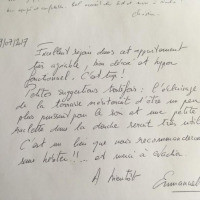 Excellent séjour dans cet appartement
très agréable, bien décoré et hyper
fonctionnel. C'est top!
Petites suggestions toutefois: l'éclairage
de la terrasse mériterait d'être un peu
plus puissant pour le soir et une petite
dans la douche serait très utile
C'est un lieu que nous recommanderons
sans hésiter!!! ... et merci à
A bientôt
Emmanuel